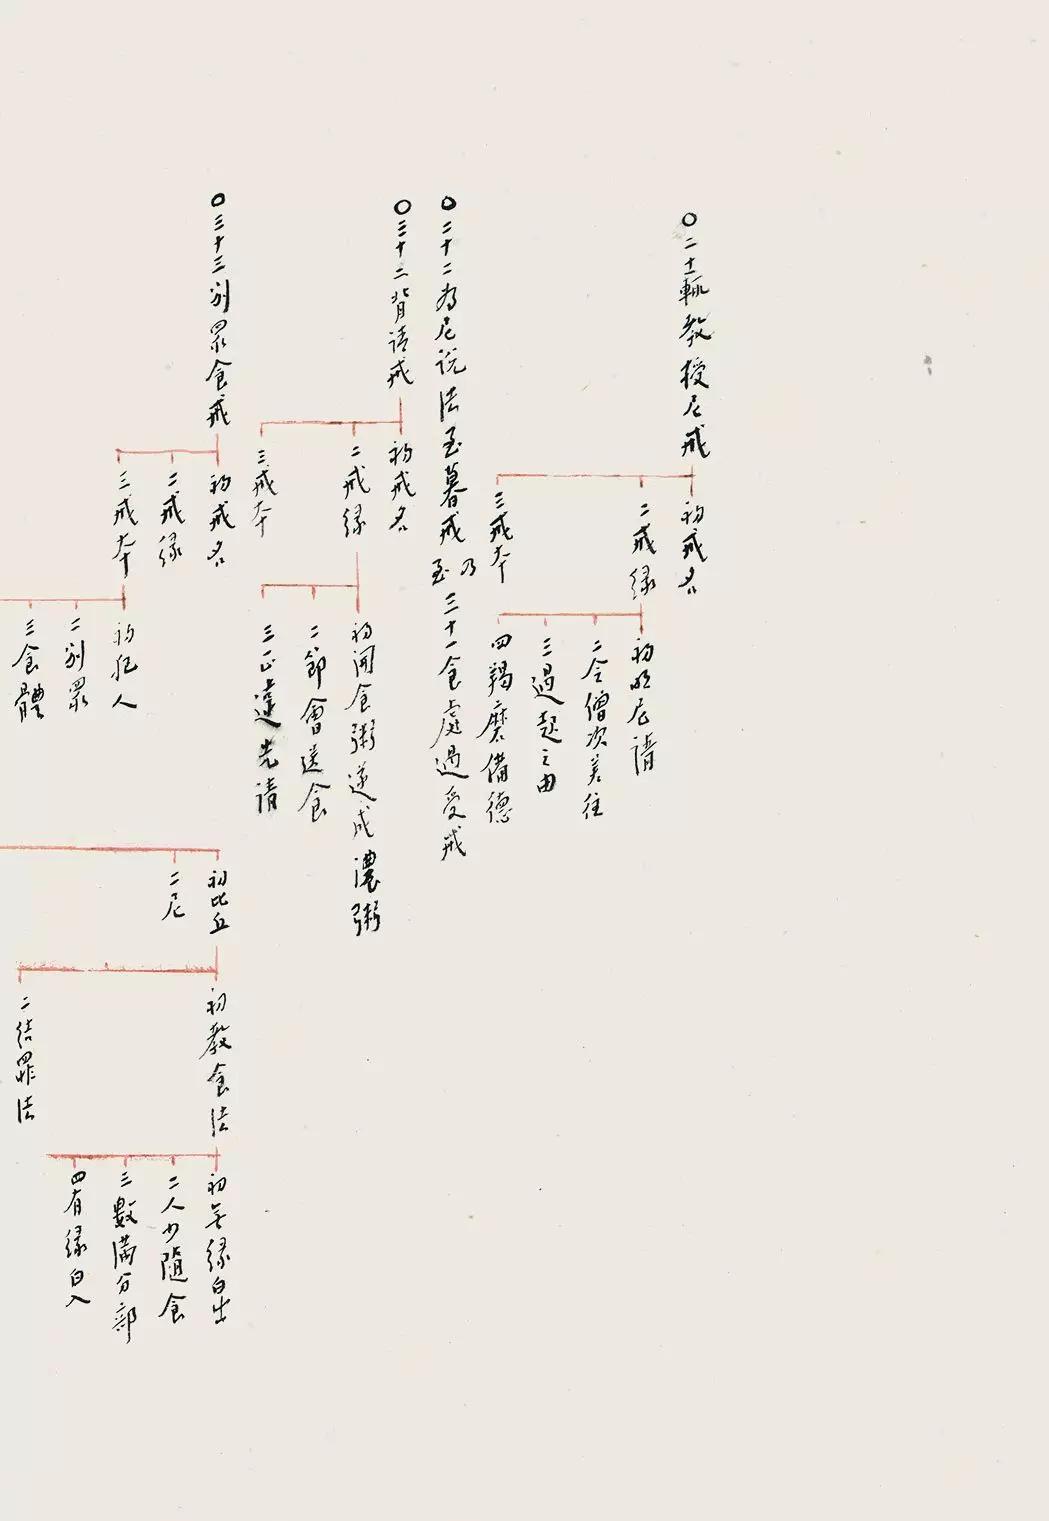 ○二十一輒教授尼戒
初戒名
二戒緣
初明尼請
二令僧次差往
三過起之由
四羯磨備德
三戒本
○二十二為尼說法至暮戒乃至三十一食處過受戒
○三十二背請戒
初戒名
二戒緣
初開食粥遂成濃粥
二節會送食
三正違先請
三戒本
○三十三別眾食戒
初戒名
二戒緣
三戒本
初犯人
二別眾
三食體
初比丘
二尼
初教食法
二結罪法
初無緣白出
二人少隨食
三數滿分部
四有緣白入